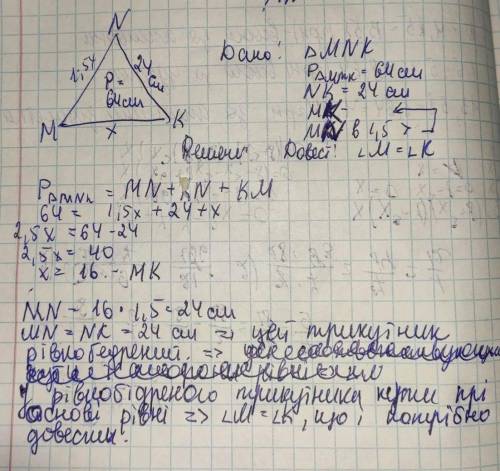 N
1,5x
24
см
P=
64см
M
x
K
Дано: △MNK
P△MNK = 64 см
NK = 24 см
MK -
MN в 1,5 >
Довести: ∠M = ∠K
P△MNK = MN + KN + KM
64 = 1,5x + 24 + x
2,5x = 64 - 24
2,5x = 40
x = 16 - MK
MN - 16 · 1,5 = 24 см
MN = NK = 24 см => цей трикутник
рівнобедрений =>
У рівнобідреного трикутника кути прі
основі рівні => ∠M = ∠K, що і потрібно
довести.